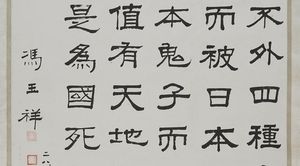 不外四種
而被日本
本鬼子而
值有天地
是為國死
馮玉祥
二八